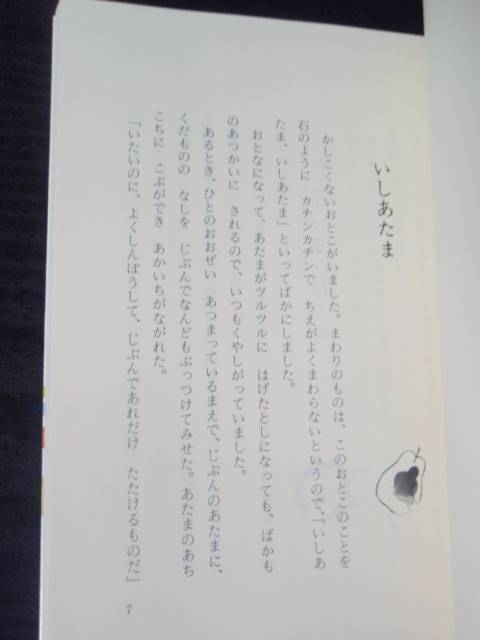 いしあたま
かしこくないおとこがいました。まわりのものは、このおとこのことを
石のように　カチンカチンで　ちえがよくまわらないというので、「いしあ
たま、いしあたま」といってばかにしました。
おとなになって、あたまがツルツルに　はげたとしになっても、ばかも
のあつかいに　されるので、いつもくやしがっていました。
あるとき、ひとのおおぜい　あつまっているまえで、じぶんのあたまに、
くだものの　なしを　じぶんでなんどもぶっつけてみせた。あたまのあち
こちに　こぶができ　あかいちがながれた。
「いたいのに、よくしんぼうして、じぶんであれだけ　たたけるものだ」
7